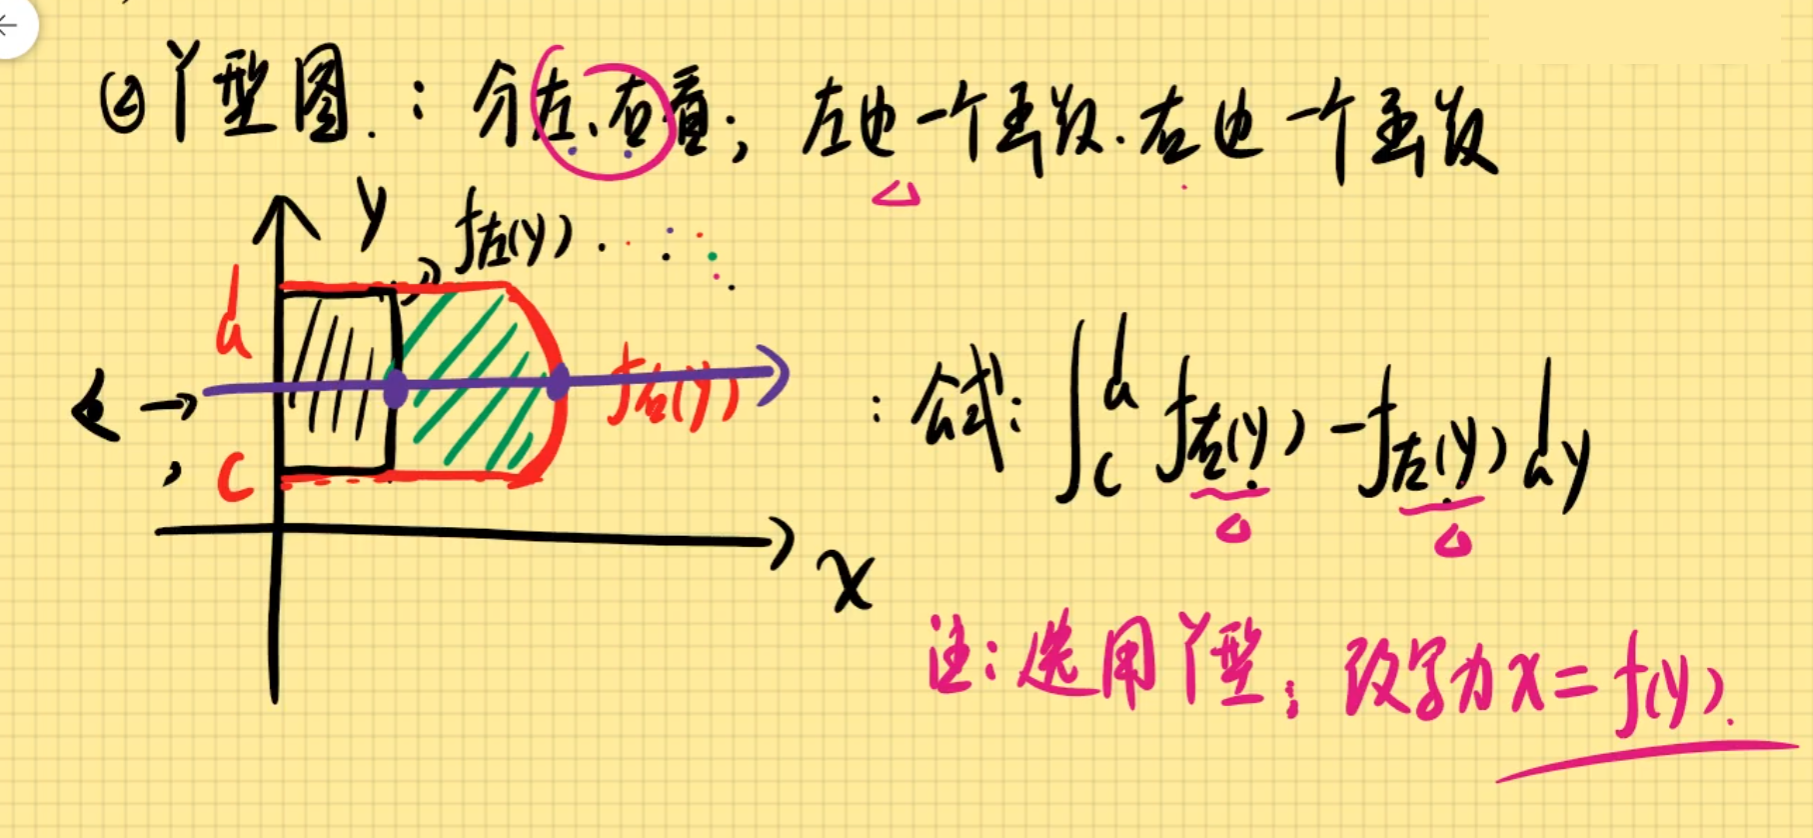 ②Y型图：分左、右看；左边一个函数.右边一个函数
y
f左(y)
d
f右(y)
c
x
公式：∫_c^d f右(y) - f左(y) dy
注：选用Y型；改写为x=f(y).